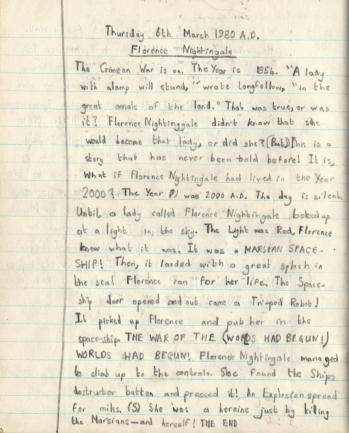 Thursday 6th March 1980 A.D.
Florence Nightingale
The Crimean War is on. The Year is 1854. "A lady
with a lamp will stand," wrote Longfellow, "in the
great annals of the land." That was true, or was
it? Florence Nightingale didn't know that she
would become that lady, or did she? (But) This is a
story that has never been told before! It is,
What if Florence Nightingale had lived in the Year
2000? The Year was 2000 A.D. The day is silent
Until a lady called Florence Nightingale looked up
at a light in the sky. The Light was Red, Florence
knew what it was. It was a MARSIAN SPACE-
SHIP! Then, it landed with a great splash in
the sea! Florence ran for her life. The Space-
ship door opened and out came a Tripod Robot!
It picked up Florence and put her in the
space-ship. THE WAR OF THE (WORDS HAD BEGUN!)
WORLDS HAD BEGUN! Florence Nightingale managed
to climb up to the controls. She found the Ships
destructer button and pressed it! An Explosion spread
for miles. (S) She was a heroine just by killing
the Marsians—and herself! THE END